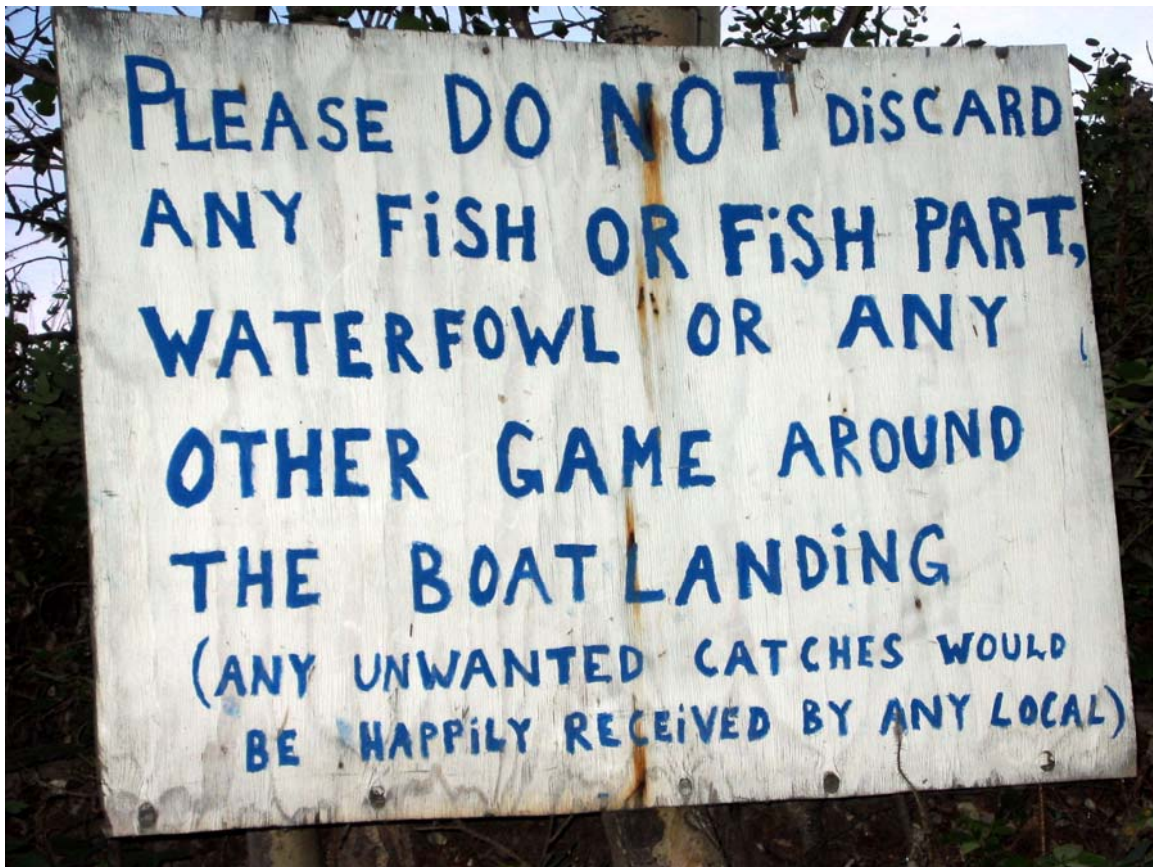 PLEASE DO NOT DiSCARD
ANY FiSH OR FiSH PART,
WATERFOWL OR ANY
OTHER GAME AROUND
THE BOAT LANDiNG
(ANY UNWANTED CATCHES WOULD
BE HAPPiLY RECEiVED BY ANY LOCAL)